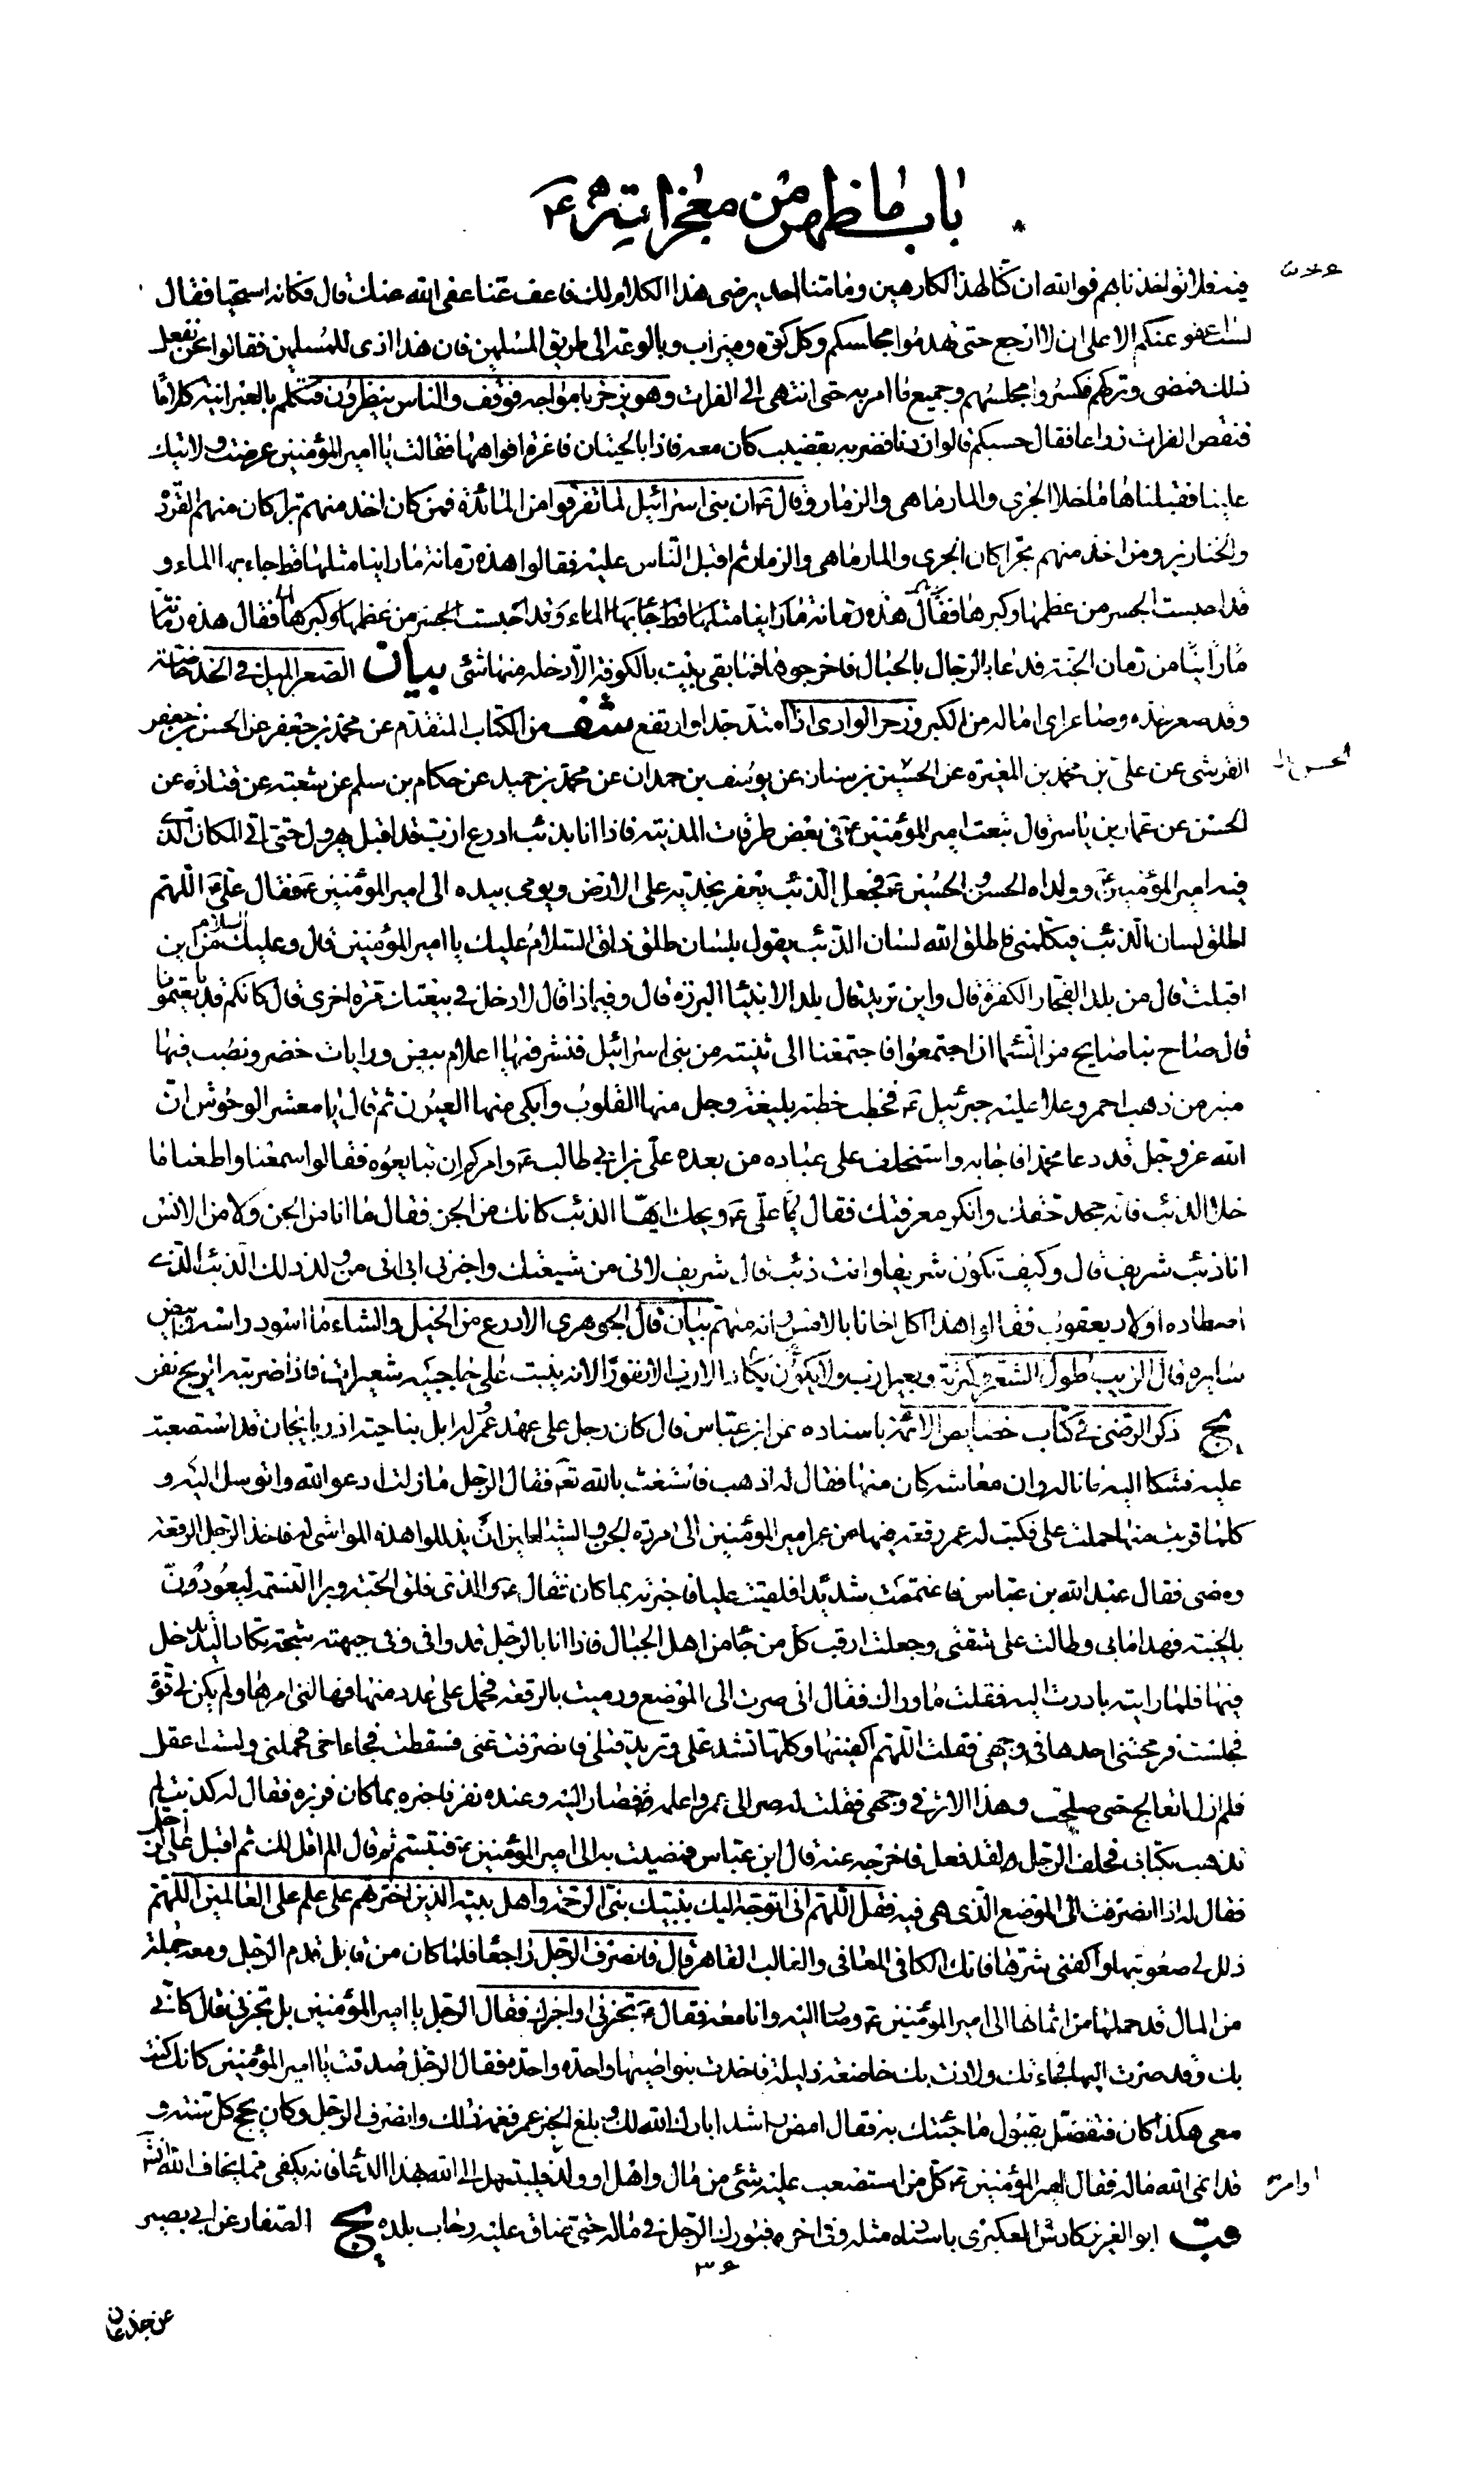 باب ما ظهر من معجزاته ع
فيه فلا تؤاخذنا بهم فوالله ان كنا لهذا لكارهين وما منا احد يرضى هذا الكلام لك فاعف عنا عفى الله عنك قال فكانه استحيا فقال
لست اعفو عنكم الا على ان لا ارجع حتى تهدموا مجالسكم وكل كوة وميزاب وبالوعة الى طريق المسلمين فان هذا اذى للمسلمين فقالوا نحن نفعل
ذلك فمضى وتركهم فكسروا مجالسهم وجميع ما امر به حتى انتهى الى الفرات وهو يزخر بامواجه فوقف والناس ينظرون فتكلم بالعبرانية كلاما
فنقص الفرات ذراعا فقال حسبكم قالوا زدنا فضربه بقضيب كان معه فاذا بالحيتان فاغرة افواهها فقالت يا امير المؤمنين عرضت ولايتك
علينا فقبلناها ما خلا الجرى والمارماهى والزمار وقال ع ان بنى اسرائيل لما تفرقوا من المائدة فمن كان اخذ منهم برا كان منهم القردة
والخنازير ومن اخذ منهم بحرا كان الجرى والمارماهى والزمار ثم اقبل الناس عليه فقالوا هذه رمانة ما راينا مثلها قط جاء بها الماء و
قد احبست الجسر من عظمها وكبرها فقال هذه رمانة ما راينا مثلها قط جاء بها الماء وقد احبست الجسر من عظمها وكبرها فقال هذه رمانة
ما راينا من رمان الجنة فدعا بالرجال بالحبال فاخرجوها فما بقى بيت بالكوفة الا دخله منها شئ بيان الصعر الميل فى الخد خاصة
وقد صعر خده وصاعر اى اماله من الكبر وزخر الوادى اذا امتد جدا وارتفع شف من الكتاب المتقدم عن محمد بن جعفر عن الحسن بن جعفر
القرشى عن على بن محمد بن المغيرة عن الحسين بن سنان عن يوسف بن حمدان عن محمد بن حميد عن حكام بن سلم عن شعبة عن قتادة عن
الحسن عن عمار بن ياسر قال تبعت امير المؤمنين ع فى بعض طرقات المدينة فاذا انا بذئب ادرع ازب قد اقبل يهرول حتى اتى المكان الذى
فيه امير المؤمنين ع وولداه الحسن والحسين ع فجعل الذئب يعفر بخديه على الارض ويومى بيده الى امير المؤمنين ع فقال على ع اللهم
اطلق لسان الذئب فيكلمنى فاطلق الله لسان الذئب يقول بلسان طلق ذلق السلام عليك يا امير المؤمنين قال وعليك السلام من اين
اقبلت قال من بلد الفجار الكفرة قال واين تريد قال بلد الانبياء البررة قال وفيما ذا قال لادخل فى بيعتك مرة اخرى قال كانكم قد بايعتمونا
قال صاح بنا صايح من السماء ان اجتمعوا فاجتمعنا الى ثنية من بنى اسرائيل فنشر فيها اعلام بيض ورايات خضر ونصب فيها
منبر من ذهب احمر وعلا عليه جبرئيل ع فخطب خطبة بليغة وجل منها القلوب وابكى منها العيون ثم قال يا معشر الوحوش ان
الله عز وجل قد دعا محمدا فاجابه واستخلف على عباده من بعده على بن ابى طالب ع وامركم ان تبايعوه فقالوا سمعنا واطعنا ما
خلا الذئب فانه جحد حقك وانكر معرفتك فقال على ع ويحك ايها الذئب كانك من الجن فقال ما انا من الجن ولا من الانس
انا ذئب شريف قال وكيف تكون شريفا وانت ذئب قال شريف لانى من شيعتك واخبرنى ابى انى من ولد ذلك الذئب الذى
اصطاده اولاد يعقوب فقالوا هذا اكل اخانا بالامس وانه متهم بيان قال الجوهرى الادرع من الخيل والشاء ما اسود راسه وابيض
سايره قال الزبب طول الشعر وكثرته وبعير ازب ولا يكاد يكون الازب الا نفورا لانه ينبت على حاجبيه شعيرات فاذا ضربته الريح نفر
يج ذكر الرضى فى كتاب خصايص الائمة باسناده عن ابن عباس قال كان رجل على عهد عمر له ابل بناحية اذربايجان قد استصعبت
عليه فشكا اليه ما ناله وان معاشه كان منها فقال له اذهب فاستغث بالله تع فقال الرجل ما زلت ادعو الله واتوسل اليه و
كلما قربت منها حملت على فكتب له عمر رقعة فيها من عمر امير المؤمنين الى مردة الجن والشياطين ان يذللوا هذه المواشى له فاخذ الرجل الرقعة
ومضى فقال عبد الله بن عباس فاغتممت شديدا فلقيت عليا فاخبرته بما كان فقال ع والذى فلق الحبة وبرا النسمة ليعودن
بالخيبة فهدا ما بى وطالت على شقتى وجعلت ارقب كل من جاء من اهل الجبال فاذا انا بالرجل قد وافى وفى جبهته شجة تكاد اليد تدخل
فيها فلما رايته بادرت اليه فقلت ما وراك فقال انى صرت الى الموضع ورميت بالرقعة فحمل على عدد منها فهالنى امرها ولم يكن لى قوة
فجلست فرمحتنى احدها فى وجهى فقلت اللهم اكفنيها وكلها تشد على وتريد قتلى فانصرفت عنى فسقطت فجاء اخى فحملنى ولست اعقل
فلم ازل اتعالج حتى صلحت وهذا الاثر فى وجهى فقلت له صر الى عمر واعلمه فصار اليه وعنده نفر فاخبره بما كان فزبره فقال له كذبت لم
تذهب بكتابى فحلف الرجل لقد فعل فاخرجه عنه قال ابن عباس فمضيت به الى امير المؤمنين ع فتبسم ثم قال الم اقل لك ثم اقبل على الرجل
فقال له اذا انصرفت الى الموضع الذى هى فيه فقل اللهم انى اتوجه اليك بنبيك نبى الرحمة واهل بيته الذين اخترتهم على علم على العالمين اللهم
ذلل لى صعوبتها واكفنى شرها فانك الكافى المعافى والغالب القاهر قال فانصرف الرجل راجعا فلما كان من قابل قدم الرجل ومعه جملة
من المال قد حملها من اثمانها الى امير المؤمنين ع وصار اليه وانا معه فقال ع تخبرنى او اخبرك فقال الرجل يا امير المؤمنين بل تخبرنى قال كانى
بك وقد صرت اليها فجاءتك ولاذت بك خاضعة ذليلة فاخذت بنواصيها واحدة واحدة فقال الرجل صدقت يا امير المؤمنين كانك كنت
معى هكذا كان فتفضل بقبول ما جئتك به فقال امض راشدا بارك الله لك وبلغ الخبر عمر فغمه ذلك وانصرف الرجل وكان يحج كل سنة و
قد انمى الله ماله فقال امير المؤمنين ع كل من استصعب عليه شئ من مال واهل او ولد فليبتهل الى الله بهذا الدعا فانه يكفى مما يخاف انشاء الله
قب ابو العزيز كادش العكبرى باسناده مثله وفى اخره فبورك الرجل فى ماله حتى ضاق عليه رحاب بلده يج الصفار عن ابى بصير
٣۶
عن جذعان